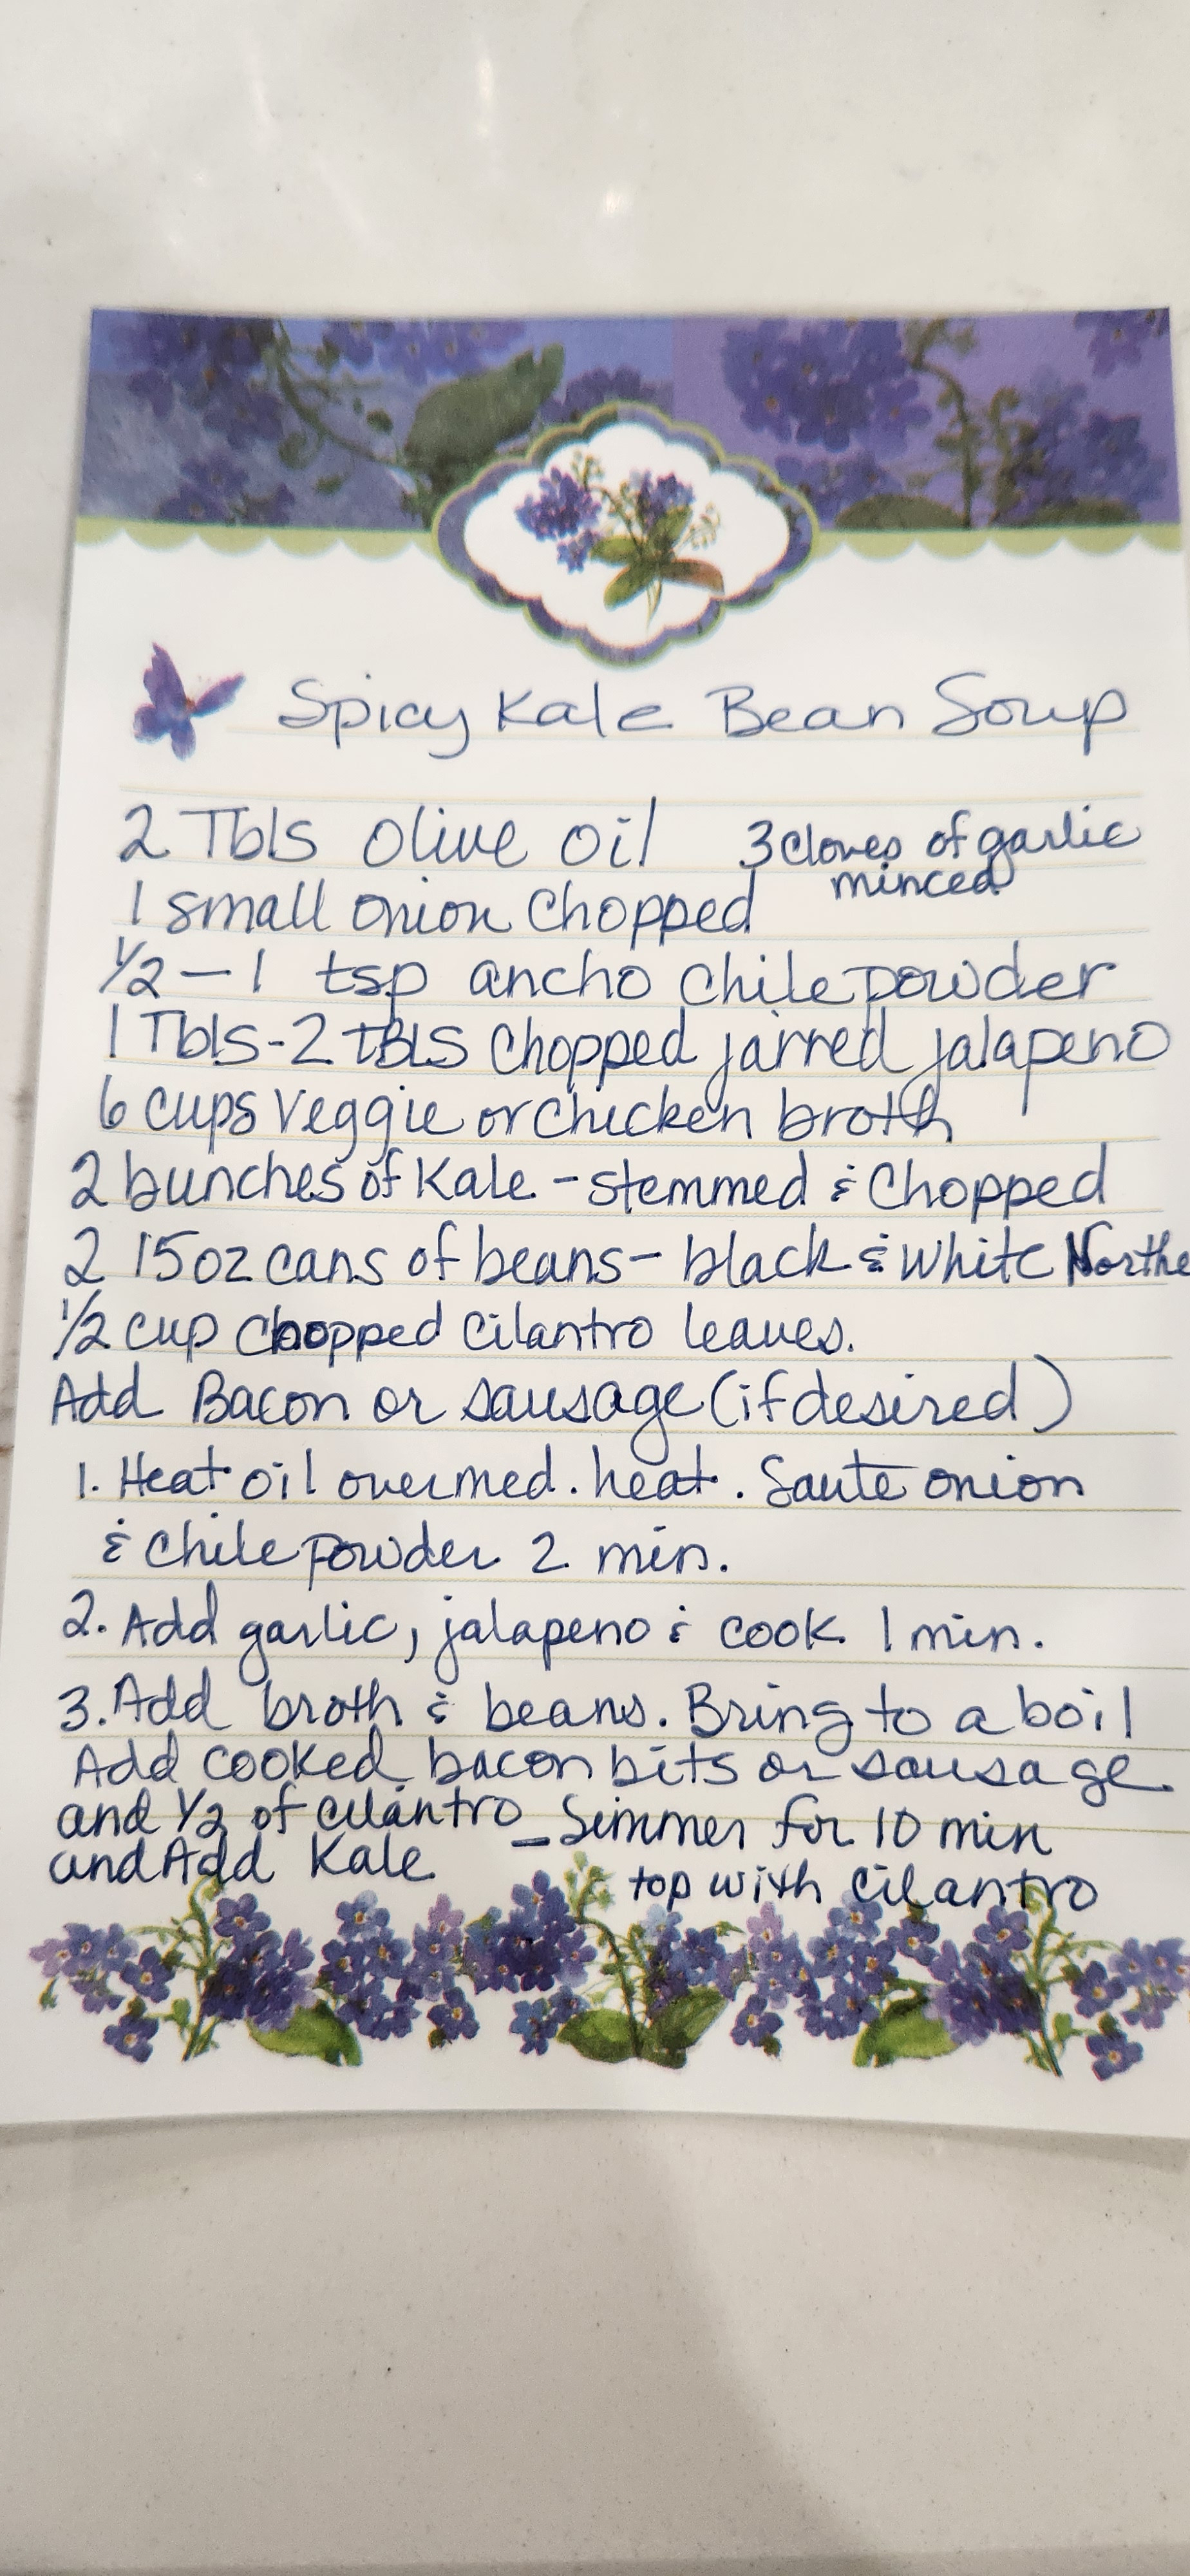 Spicy Kale Bean Soup
2 Tbls Olive oil
3 cloves of garlic
minced
1 small onion Chopped
1/2 - 1 tsp ancho chile powder
1 Tbls - 2 TBLS Chopped jarred jalapeno
6 cups Veggie or chicken broth
2 bunches of Kale - stemmed & Chopped
2 15 oz cans of beans - black & white Northe
1/2 cup chopped cilantro leaves.
Add Bacon or sausage (if desired)
1. Heat oil over med. heat. Saute onion
& chile powder 2 min.
2. Add garlic, jalapeno & cook 1 min.
3. Add broth & beans. Bring to a boil
Add cooked bacon bits or sausage
and 1/2 of cilantro - Simmer for 10 min
and Add Kale
top with cilantro